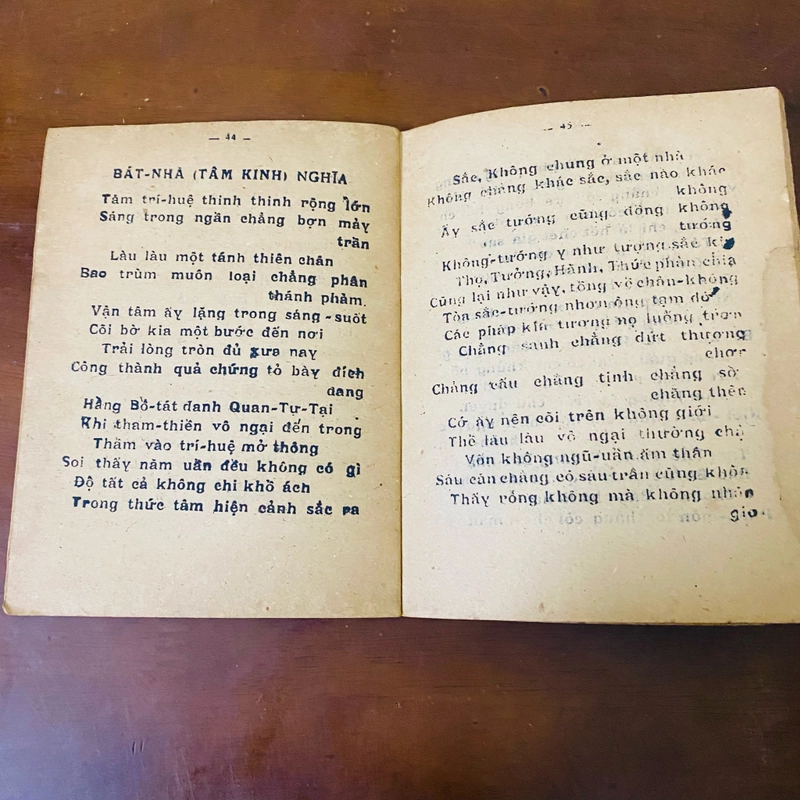 — 44 —
BÁT-NHÃ (TÂM KINH) NGHĨA
Tâm trí-huệ thinh thinh rộng lớn
Sáng trong ngần chẳng bợn mảy
trần
Làu làu một tánh thiên chân
Bao trùm muôn loại chẳng phân
thánh phàm.
Vận tâm ấy lặng trong sáng-suốt
Cõi bờ kia một bước đến nơi
Trải lòng tròn đủ xưa nay
Công thành quả chứng tỏ bày đích
dang
Hằng Bồ-tát danh Quan-Tự-Tại
Khi tham-thiền vô ngại đến trong
Thầm vào trí-huệ mở thông
Soi thấy năm uẩn đều không có gì
Độ tất cả không chi khổ ách
Trong thức tâm hiện cảnh sắc ra
— 45 —
Sắc, Không chung ở một nhà
Không chẳng khác sắc, sắc nào khác
không
Ấy sắc tướng cũng đồng không
tướng
Không-tướng y như tượng sắc
Thọ, Tưởng, Hành, Thức phân chia
Cũng lại như vậy, tổng về chân-không
Tòa sắc-tướng nhơn ông tạm đó
Các pháp kia tương nọ luống trơn
Chẳng sanh chẳng dứt thượng
chơn
Chẳng xấu chẳng tịnh chẳng sờ
chẳng thêm
Cớ ấy nên cõi trên không giới
Thể làu làu vô ngại thường
Vốn không ngũ-uẩn ấm thân
Sáu căn chẳng có sáu trần cũng không
Thấy rỗng không mà không nhãn
giớ